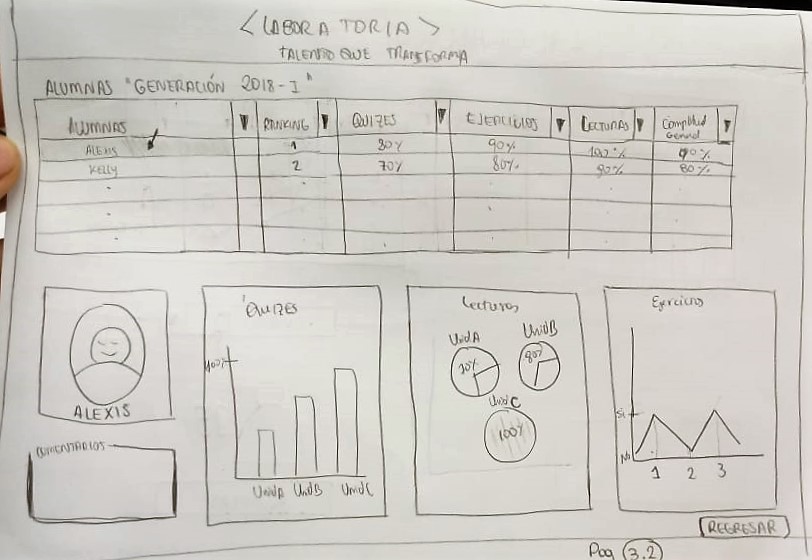 < LABORATORIA >
TALENTO QUE TRANSFORMA
ALUMNAS "GENERACIÓN 2018-I"
ALUMNAS RANKING QUIZES EJERCICIOS LECTURAS Complitud General
ALEXIS 1 80% 90% 100% 90%
KELLY 2 70% 80% 90% 80%
ALEXIS
COMENTARIOS
QUIZES
100%
UnidA UnidB UnidC
Lecturas
UnidA UnidB
80%
UnidC
100%
Ejercicios
Si
No
1 2 3
REGRESAR
Pag 3.2